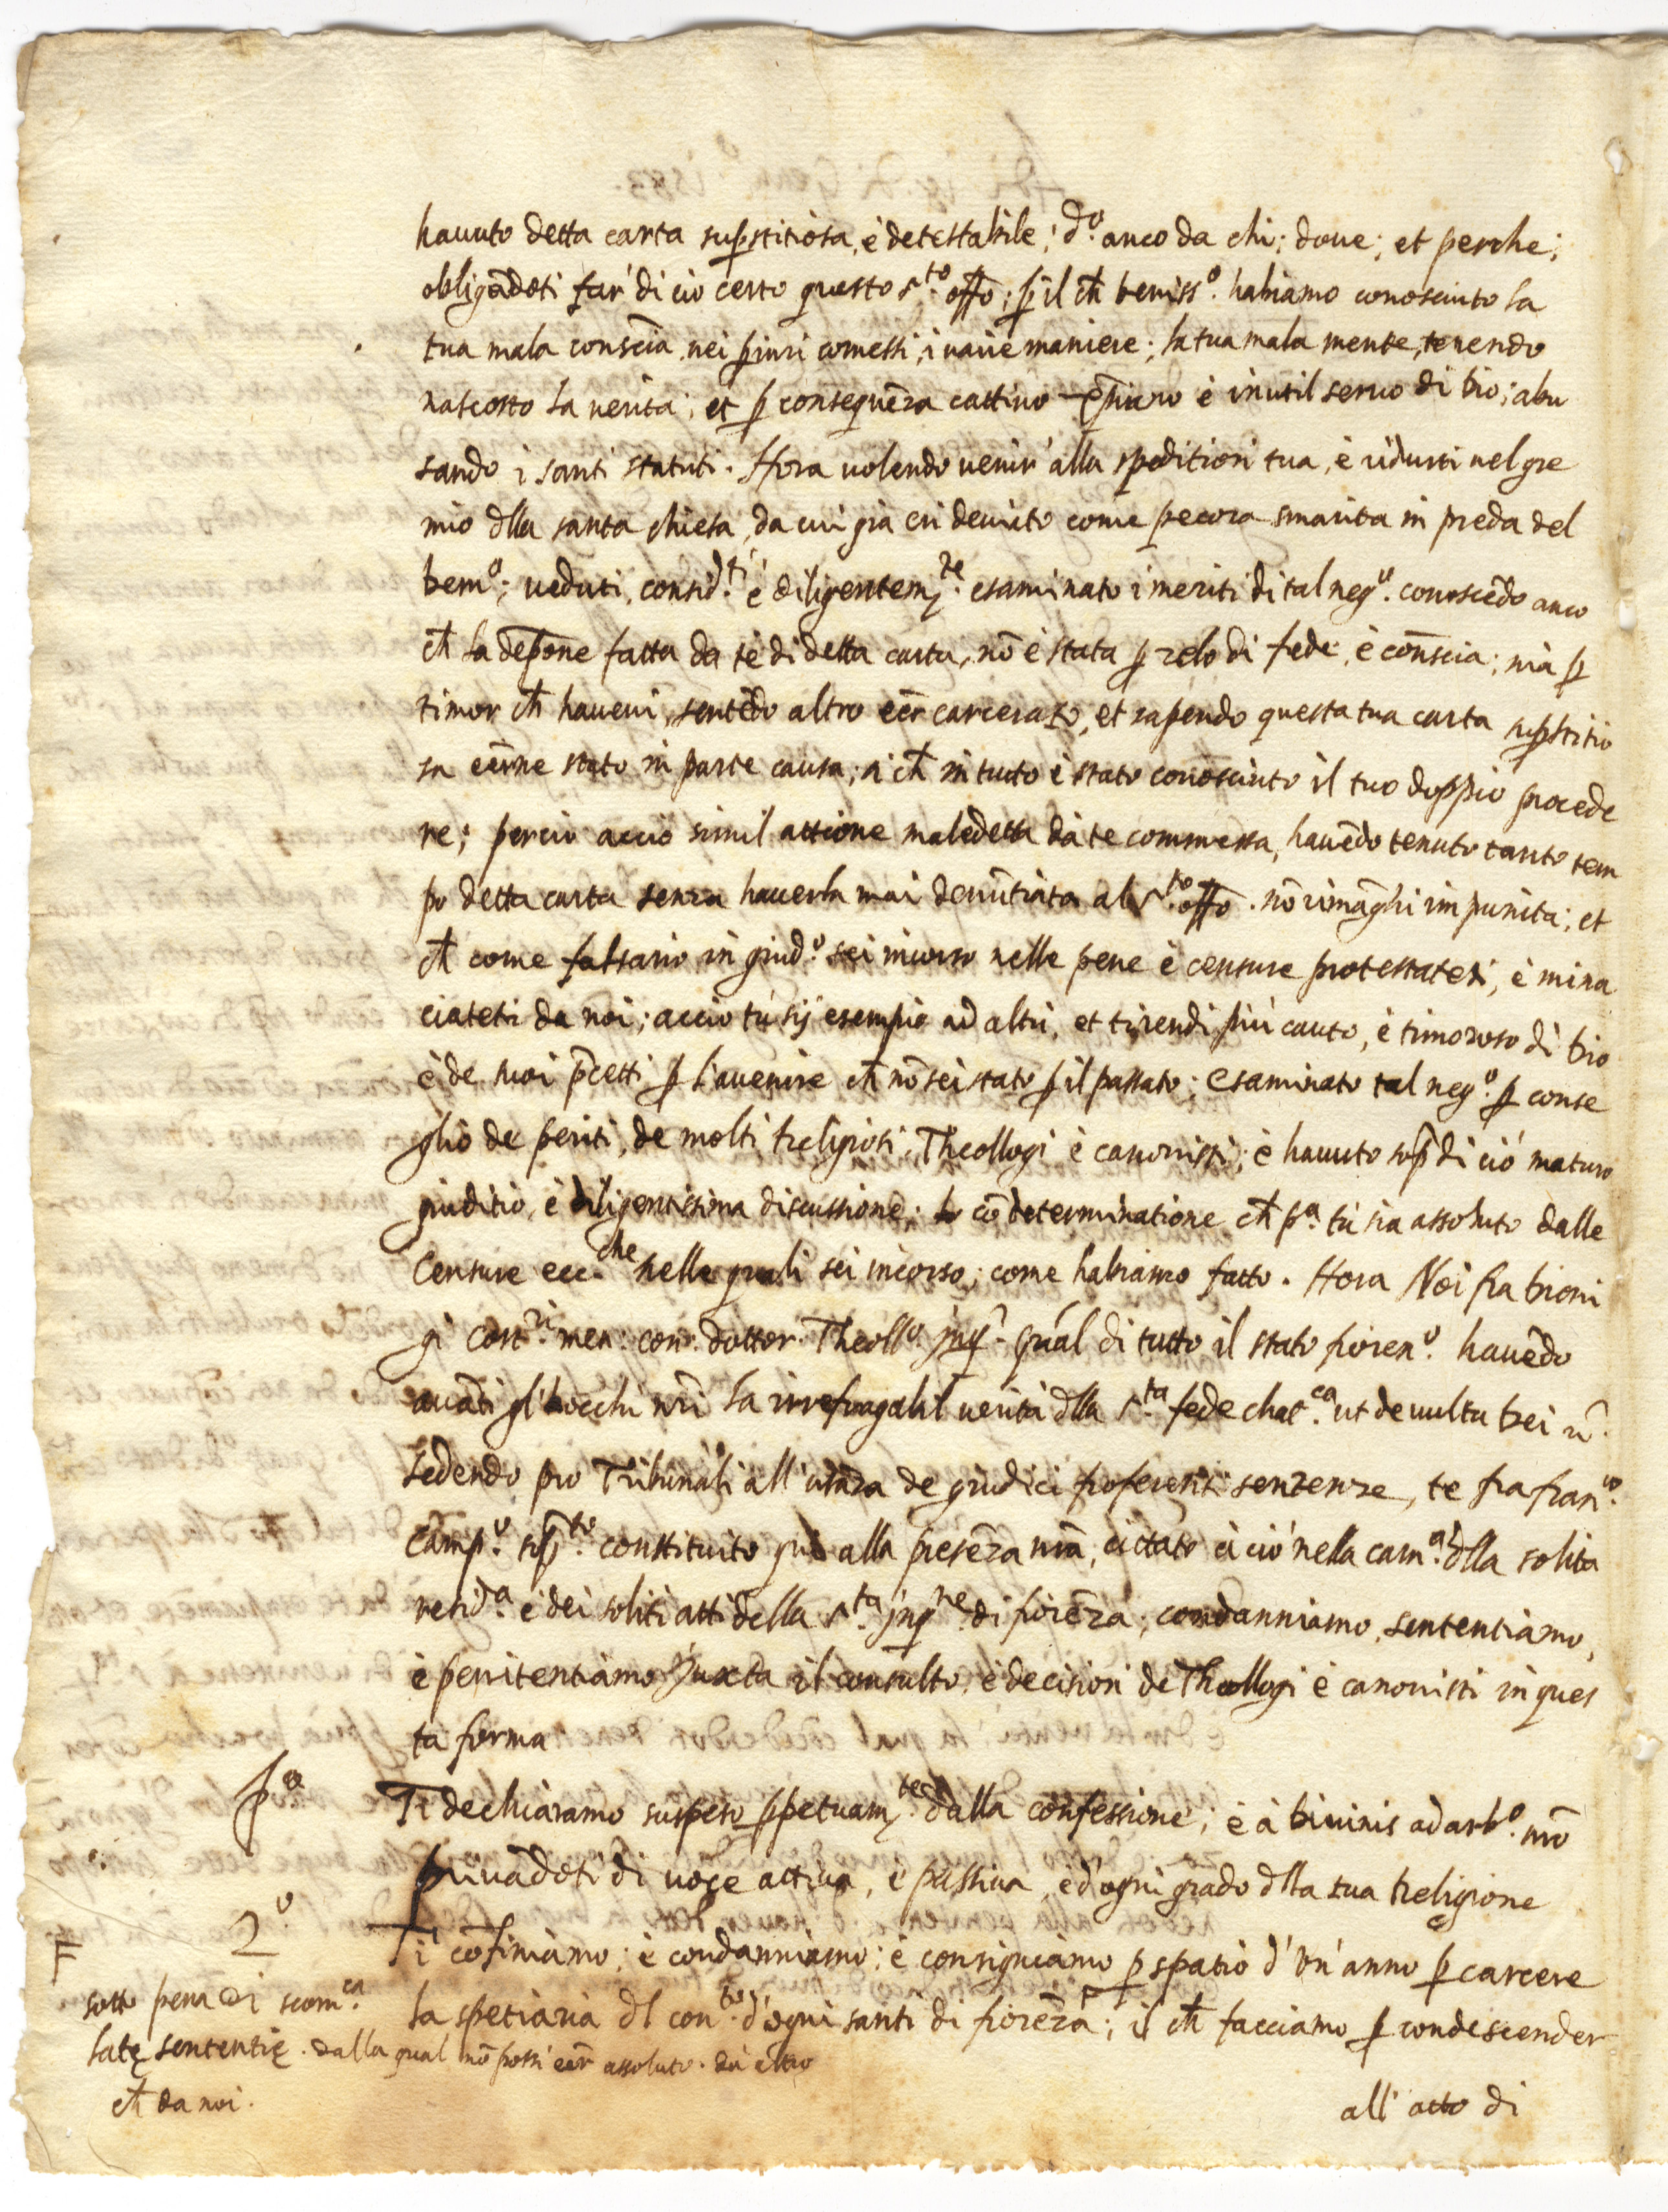 hauuto detta carta suꝑstitiosa, è detestabile; d.º anco da chi; doue; et perche;
obligādoti far' di ciò certo questo s.to offō; ꝑ il ch̄ beniss.º habiamo conosciuto la
tua mala consc̄ia, nei ꝑiuri comessi, i uarie maniere; la tua mala mente, tenendo
nascosto la uerità; et ꝑ conseguēza cattiuo è inutil seruo di Dio; abu
sando i santi statuti. Hora uolendo uenir' alla speditiori tua, è ridurti nel gre
mio dlla santa chiesa, da cui già eri deuiato come pecora smarita in preda del
Dem.º; ueduti, consid.ti è diligentem.te esaminato i meriti di tal neg.º conoscēdo anco
ch̄ la depōne fatta da tè di detta carta, nō è stata ꝑ zelo di fede, è cōnscia; mà ꝑ
timor ch̄ haueui, sentēdo altro eēr carcerato, et sapendo questa tua carta suꝑstitio
sa eērne stato in parte causa; si ch̄ in tutto è stato conosciuto il tuo doppio procede
re; perciò acciò simil attione maledetta dà te commessa, hauēdo tenuto tanto tem
po detta carta senza hauerla mai denūtiata al s.to offō. nō rimāghi impunita; et
ch̄ come falsario in giud.º sei incorso nelle pene è censure protestateti, è mina
ciateti da noi; acciò tù sij esempio ad altri, et ti rendi più cauto, è timoroso di Dio
è de suoi p̄cetti ꝑ l'auenire ch̄ nō sei stato ꝑ il passato; esaminato tal neg.º ꝑ conse
glio de periti, de molti Religiosi, Theollogi è canonisti; è hauuto sop̄ di ciò maturo
giuditio, è diligentissima discussione; cō determinatione ch̄ p.ª tù sia assoluto dalle
Censure ecc.che nelle quali sei incorso; come habiamo fatto. Hora Noi fra Dioni
gi Cost.ri men: con: dottor. Theoll.º jnq.r gn̄al di tutto il stato fioren.º hauēdo
auāti gl'hocchi nr̄i la irrefragabil uerità dlla s.ta fede chat.ca ut de uultu Dei
Sedendo pro Tribunali all'usāza de giudici proferenti sentenze, te fra fran.co
Camp.º sop̄.to constituito quì alla presēza nr̄a, cittato à ciò nella cam.ª dlla solita
resid.ª è dei soliti atti della s.ta jnq.ne di fiorēza; condanniamo, sententiamo,
è penitentiamo juxta il consulto, è decisiori de Theollogi è canonisti in ques
ta forma
p.º Ti dechiaramo suspeso ꝑpetuam.te dalla confessione; è à Diuinis ad arb.º nr̄o
priuādoti di uoce attiua, è passiua, è d'ogni grado dlla tua Religione
2.º Ti cōfiniamo; è condanniamo; è consigniamo ꝑ spatio d'un'anno ꝑ carcere
la spetiaria dl con.to d'ogni santi di fiorēza; F il ch̄ facciamo ꝑ condescender
all'atto di
F
sotto pena di scom.ca
latę sententię. dalla qual nō possi eēr assoluto. da altro
ch̄ da noi.